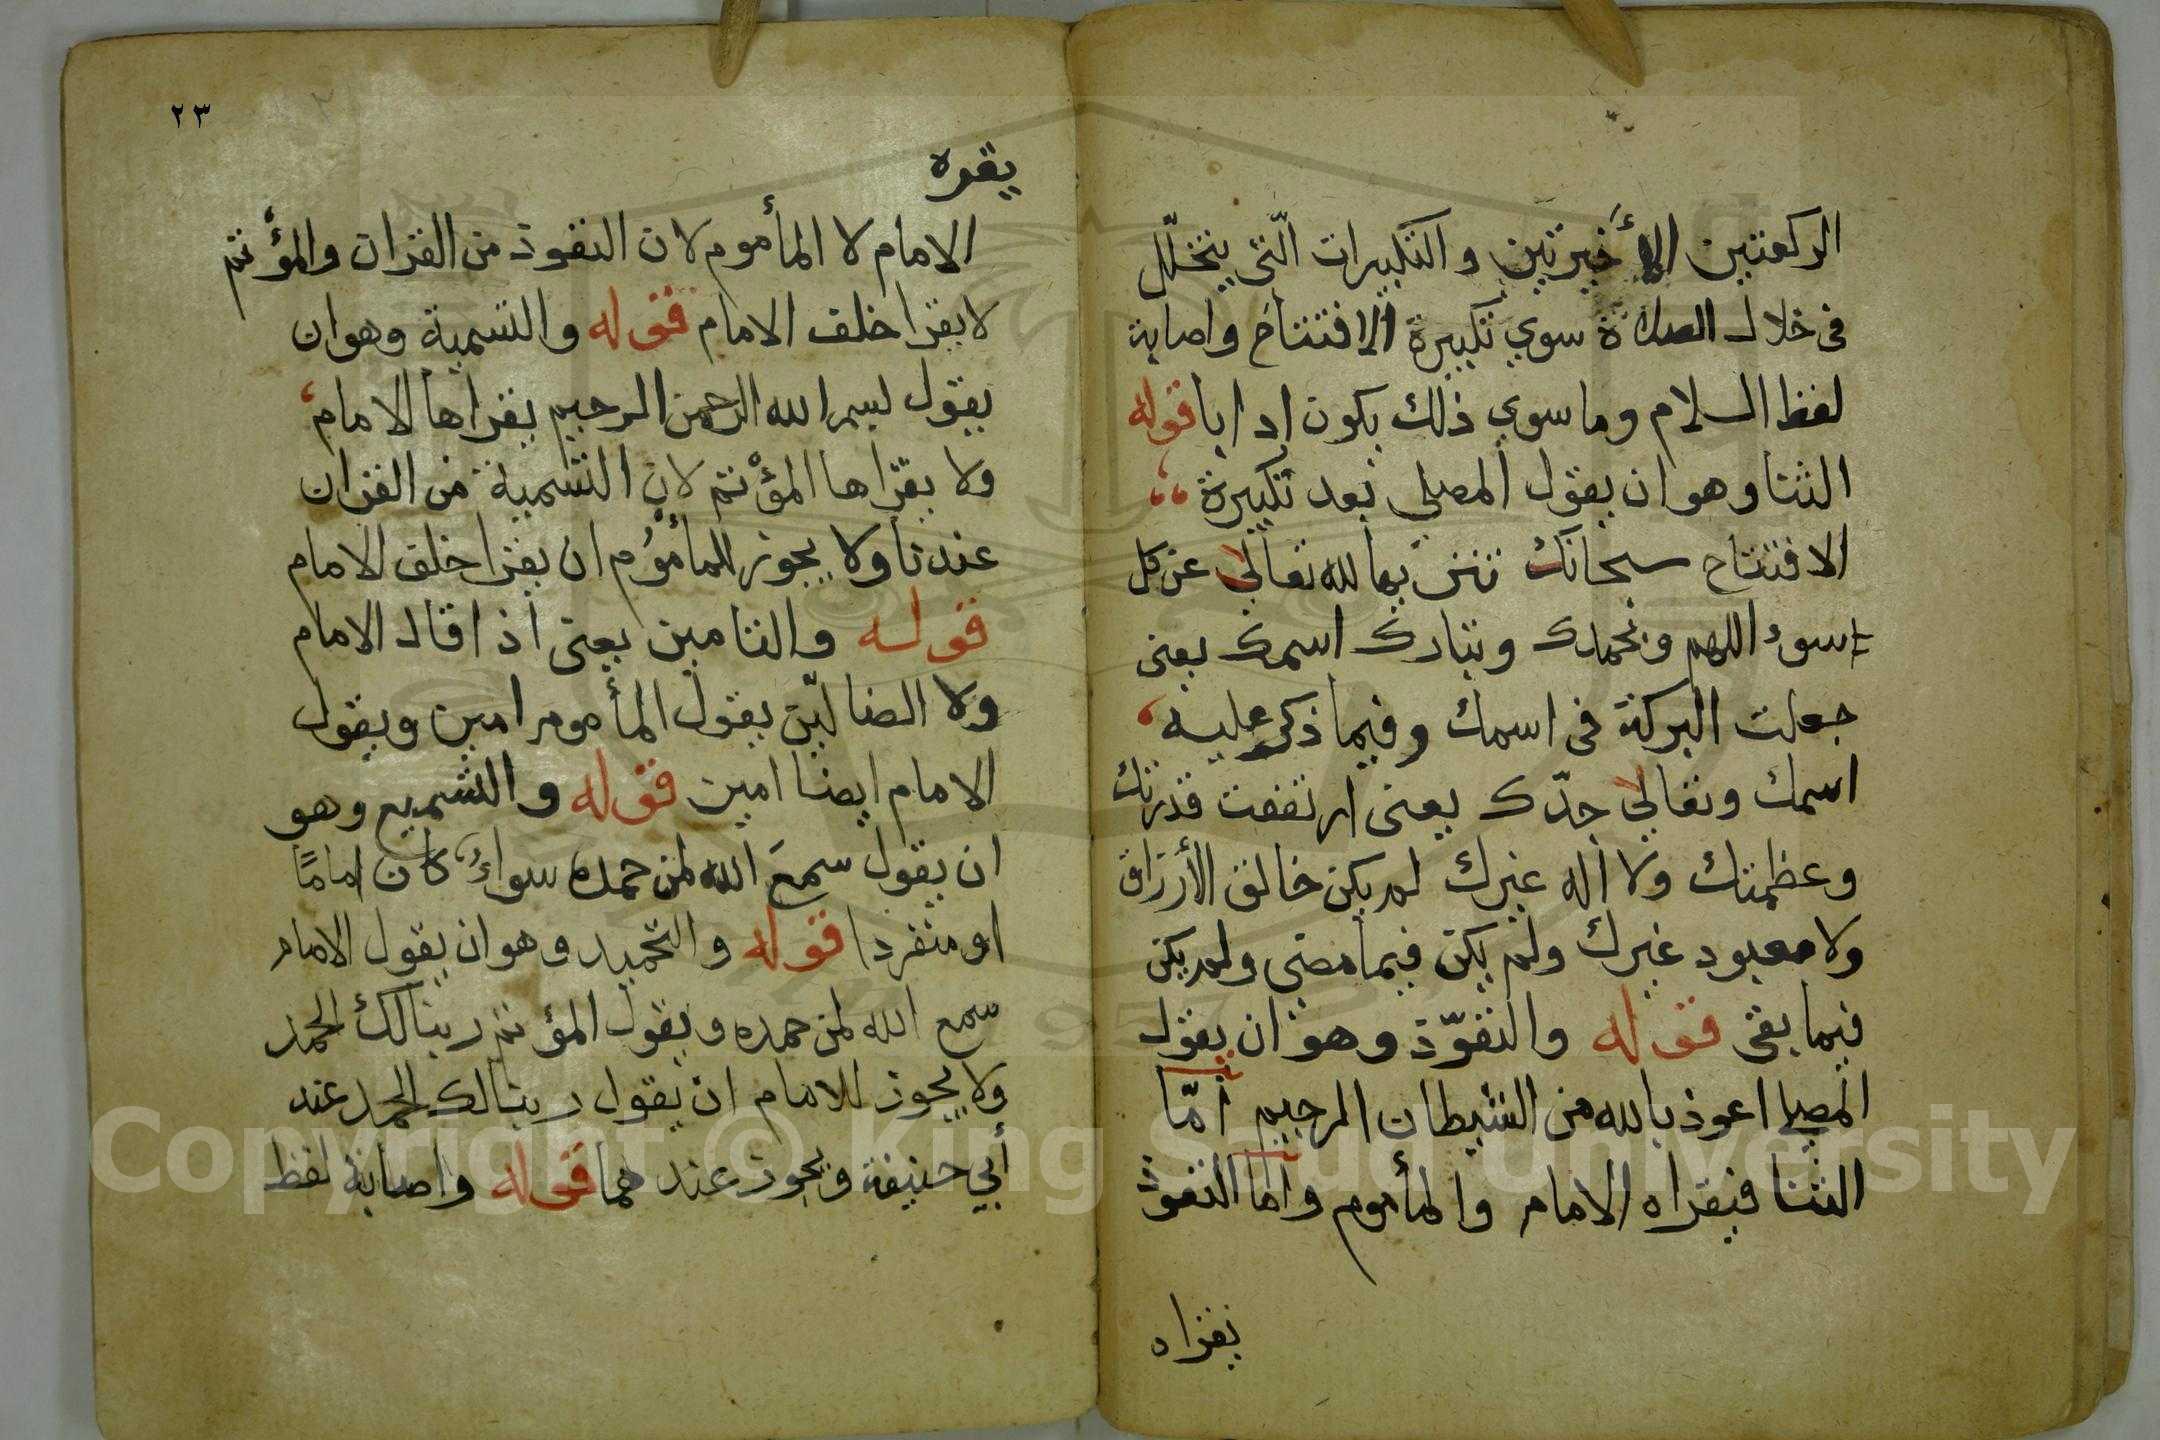 الركعتين الأخيرتين والتكبيرات الّتي يتخلّل
في خلال الصلاة سوي تكبيرة الافتتاح واصابة
لفظ السلام وما سوي ذلك يكون ادابا قوله
الثنا وهو ان يقول المصلي بعد تكبيرة
الافتتاح سبحانك تنزيها لله تعالي عن كل
سوء اللهم وبحمدك وتبارك اسمك يعني
جعلت البركة في اسمك وفيما ذكر عليه
اسمك وتعالي جدّك يعني ارتفعت قدرتك
وعظمتك ولا اله غيرك لم يكن خالق الأرزاق
ولا معبود غيرك ولم يكن فيما مضي ولم يكن
فيما بقي قوله والتعوّذ وهو ان يقول
المصلي اعوذ بالله من الشيطان الرجيم أمّا
الثنا فيقراه الامام والمأموم واما التعوذ
يقراه
٢٣
يقره
الامام لا المأموم لان التعوذ من القران والمؤتم
لا يقرا خلف الامام قوله والتسمية وهو ان
يقول بسم الله الرحمن الرحيم يقراها الامام
ولا يقراها المؤتم لان التسمية من القران
عندنا ولا يجوز للمأموم ان يقرا خلف الامام
قوله والتامين يعني اذا قال الامام
ولا الضالّين يقول المأموم امين ويقول
الامام ايضا امين قوله والتسميع وهو
ان يقول سمع الله لمن حمده سواءً كان امامًا
او منفردا قوله والتحميد وهو ان يقول الامام
سمع الله لمن حمده ويقول المؤتم ربنا لك الحمد
ولا يجوز للامام ان يقول ربنا لك الحمد عند
أبي حنيفة ويجوز عندهما قوله واصابة لفظ
Copyright © King Saud University